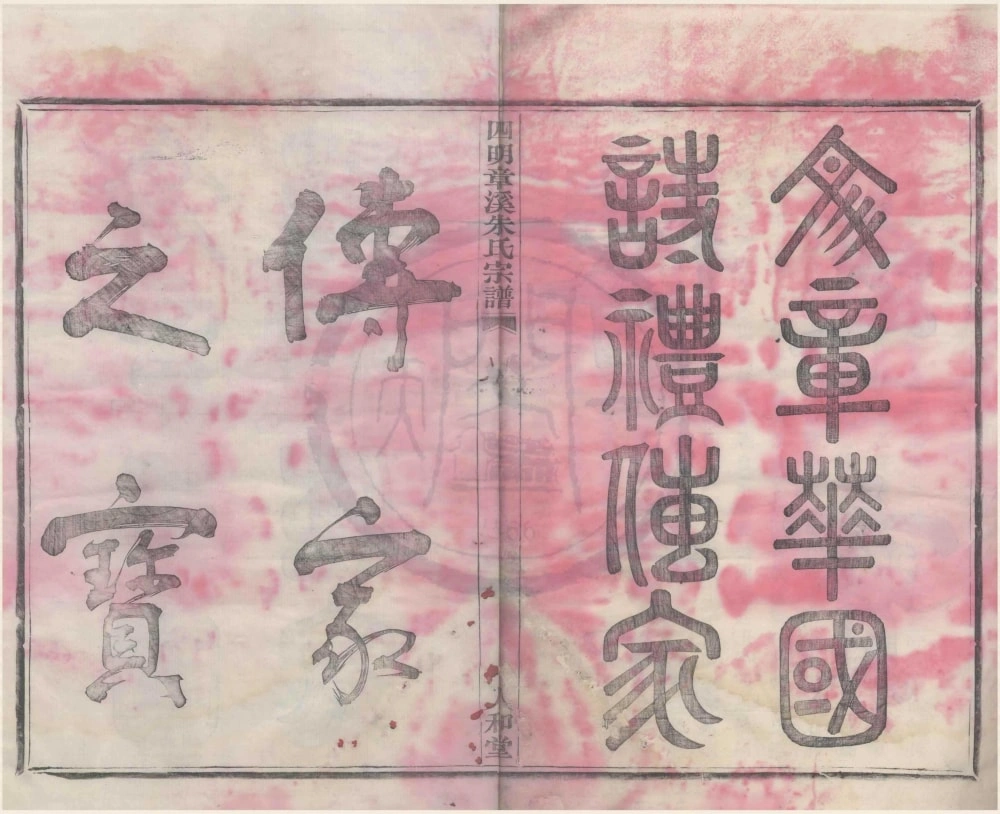 文章華國
詩禮傳家
四明章溪朱氏宗譜
人和堂
傳家
之寶